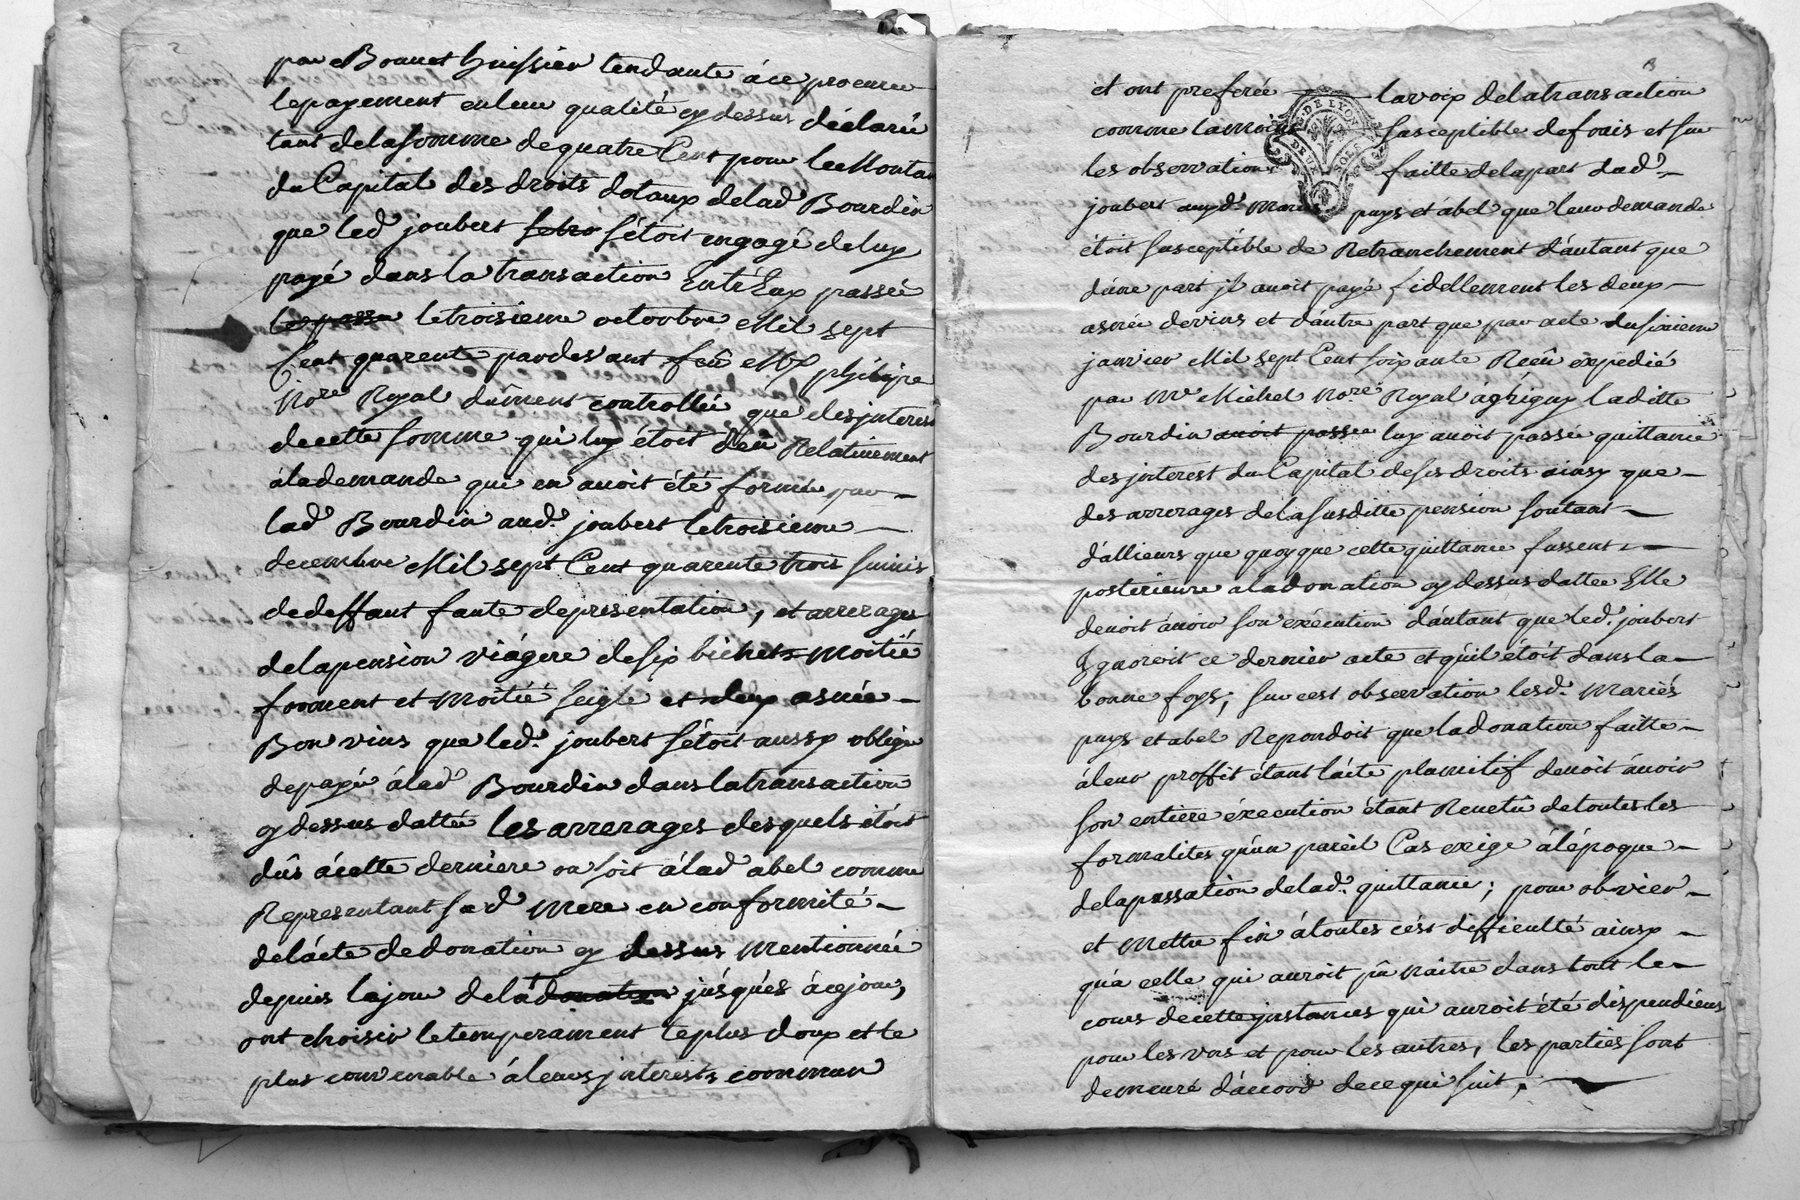 par Bonnet huissier tendante à ce procurer
le payement en leur qualité cy dessus déclarée
tant de la somme de quatre Cent pour le Montan
du Capital des droits dotaux de lad.e Bourdin
que led. joubert s'étoit engagé de luy
payé dans la transaction Entr'Eux passée
le troisieme octovbre Mil sept
Cent quarente pardevant feû Me philipe
No.re Royal dûment controllée que des jnterest
de cette somme qui luy étoit deû Relativement
à la demande qui en avoit été formée par
lad.e Bourdin aud. joubert le troisieme
decembre Mil sept Cent quarente trois suivis
de deffaut faute de presentation, et arrerages
de la pension viágere de six bichets Moitié
froment et Moitié seigle et deux asnée
Bon vins que led. joubert s'étoit aussy obligé
de payé à lad.e Bourdin dans la transaction
cy dessus dattée les arrerages desquels étoit
dûs à cette derniere ou soit à lad.e abel comme
Representant sad.e Mere en conformité
de l'acte de donation cy dessus Mentionnée
depuis lajour de la donation júsqués à ce jour,
ont choisir le temperament le plus doux et le
plus convenable à leurs jnterests commun
et ont preferée la voix de la transaction
GE. DE LYON
DEUX SOLS
comme la moins susceptible de frais et sur
les observations faitte de la part dud.
joubert auxd. Mariés puys et abel que leur demande
étoit susceptible de Retranchement d'autant que
d'une part jl avoit payé fidellement les deux
asnée de vins et d'autre part que par acte du sixieme
janvier Mil sept Cent soixante Reçû expedié
par Me Michel No.re Royal à griguy laditte
Bourdin avoit passee luy avoit passée quittance
des jnterest du Capital de ses droits ainsy que
des arrerages de la susditte pension soutant
d'allieurs que quoyque cette quittance fussent
posterieure a la donation cy dessus dattée Elle
devoit avoir son exécution d'autant que led. joubert
Ignoroit ce dernier acte et qu'il étoit dans la
bonne foys; sur cest observation lesd. Mariés
puys et abel Repondoit que la donation faitte
à leur proffit étant l'acte plamitif devoit avoir
son entiere éxecution étant Revetû de toutes les
formalites qu'un pareil Cas exige à l'époque
de la passation de lad. quittance; pour obvier
et Mettre fin à toutes cést difficulté ainsy
qu'a celle qui auroit pû naitre dans tout le
cours de cette jnstances qui auroit été dispendieux
pour les uns et pour les autres, les parties sont
demeuré d'accord de ce qui suit,